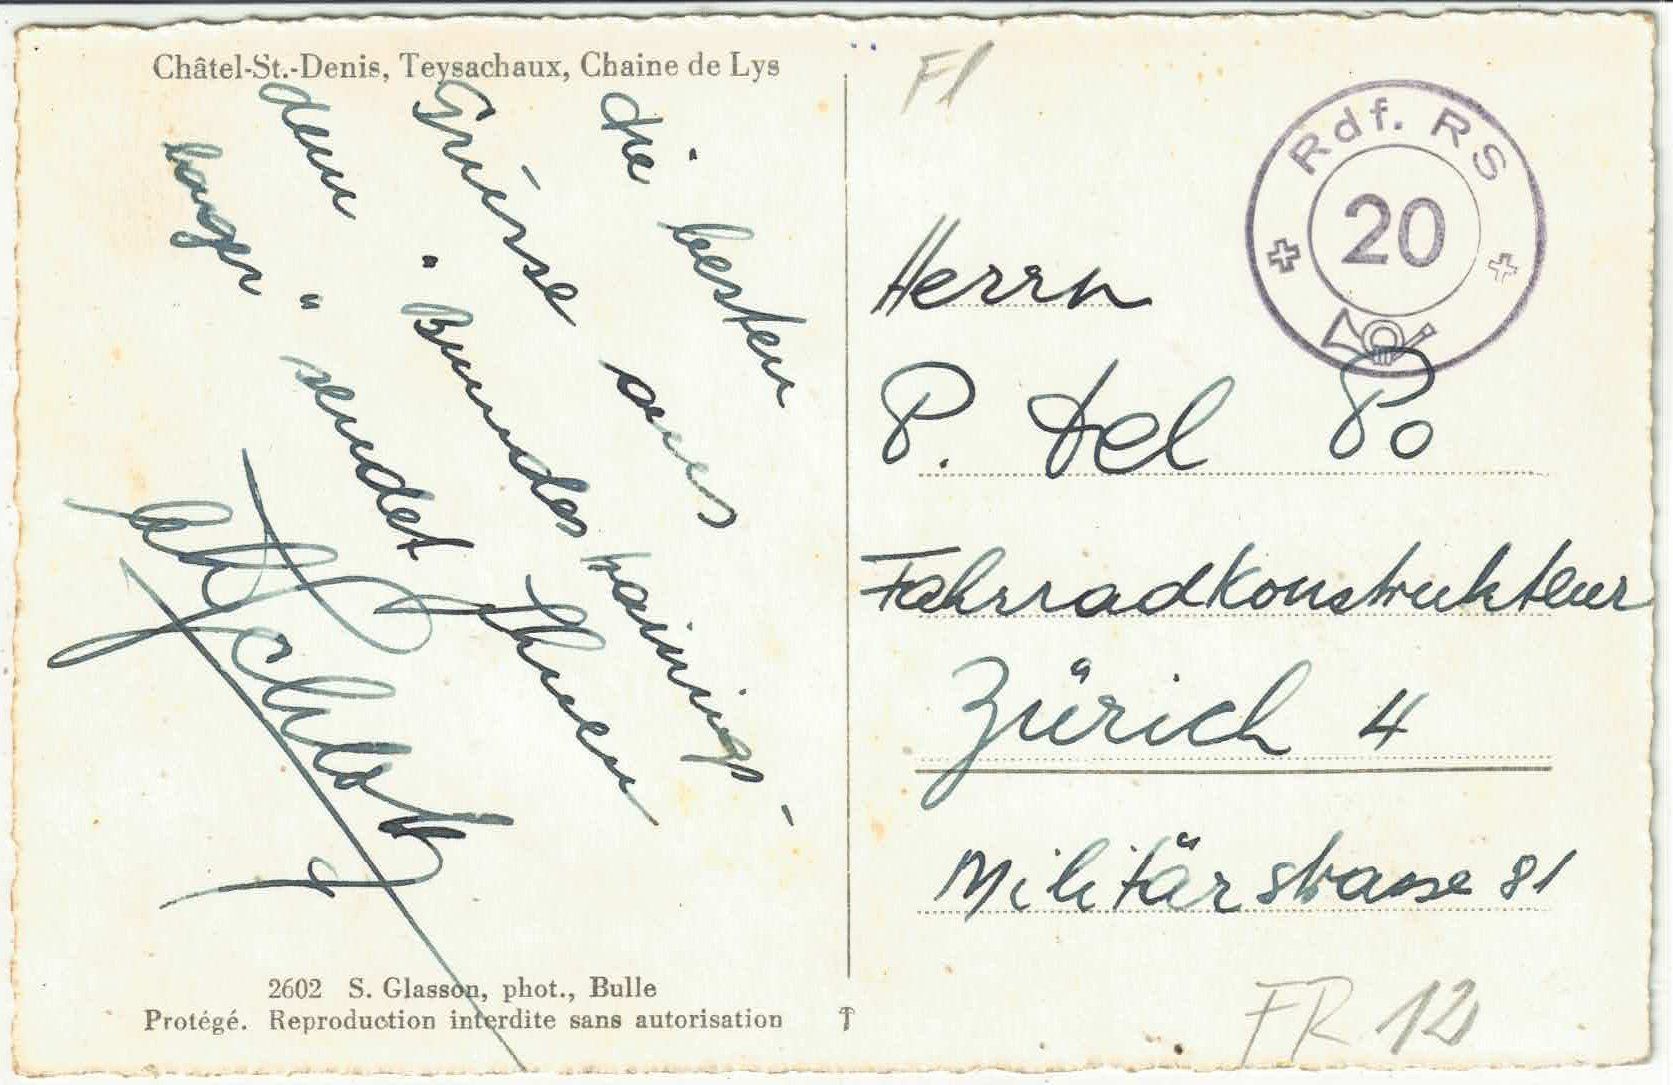 Châtel-St.-Denis, Teysachaux, Chaine de Lys
Die besten
Grüsse aus
dem "Bundestrainings-
lager" sendet Ihnen
2602 S. Glasson, phot., Bulle
Protégé. Reproduction interdite sans autorisation
Fl
Rdf. RS
20
Herrn
P. del Po
Fahrradkonstrukteur
Zürich 4
Militärstrasse 81
FR 12